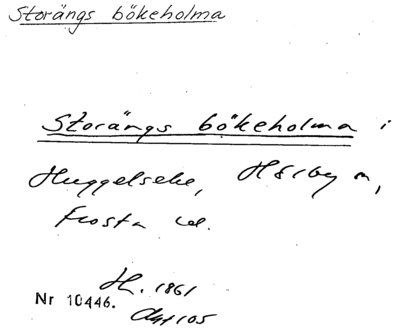 Storängs bökeholma
Storängs bökeholma i
Huggelseke, Hörby n,
Frosta
H. 1861
Nr 10446.